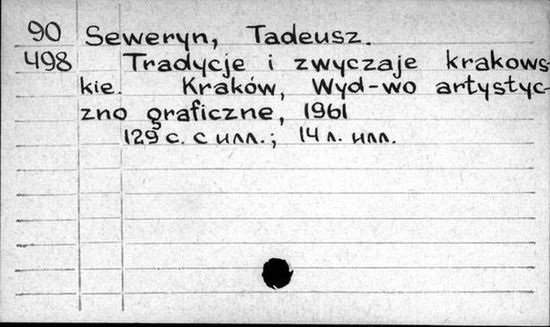 90 Seweryn, Tadeusz.
498 Tradycje i zwyczaje krakows-
kie. Kraków, Wyd-wo artystycz-
zno graficzne, 1961
129 с. с илл.; 14 л. илл.